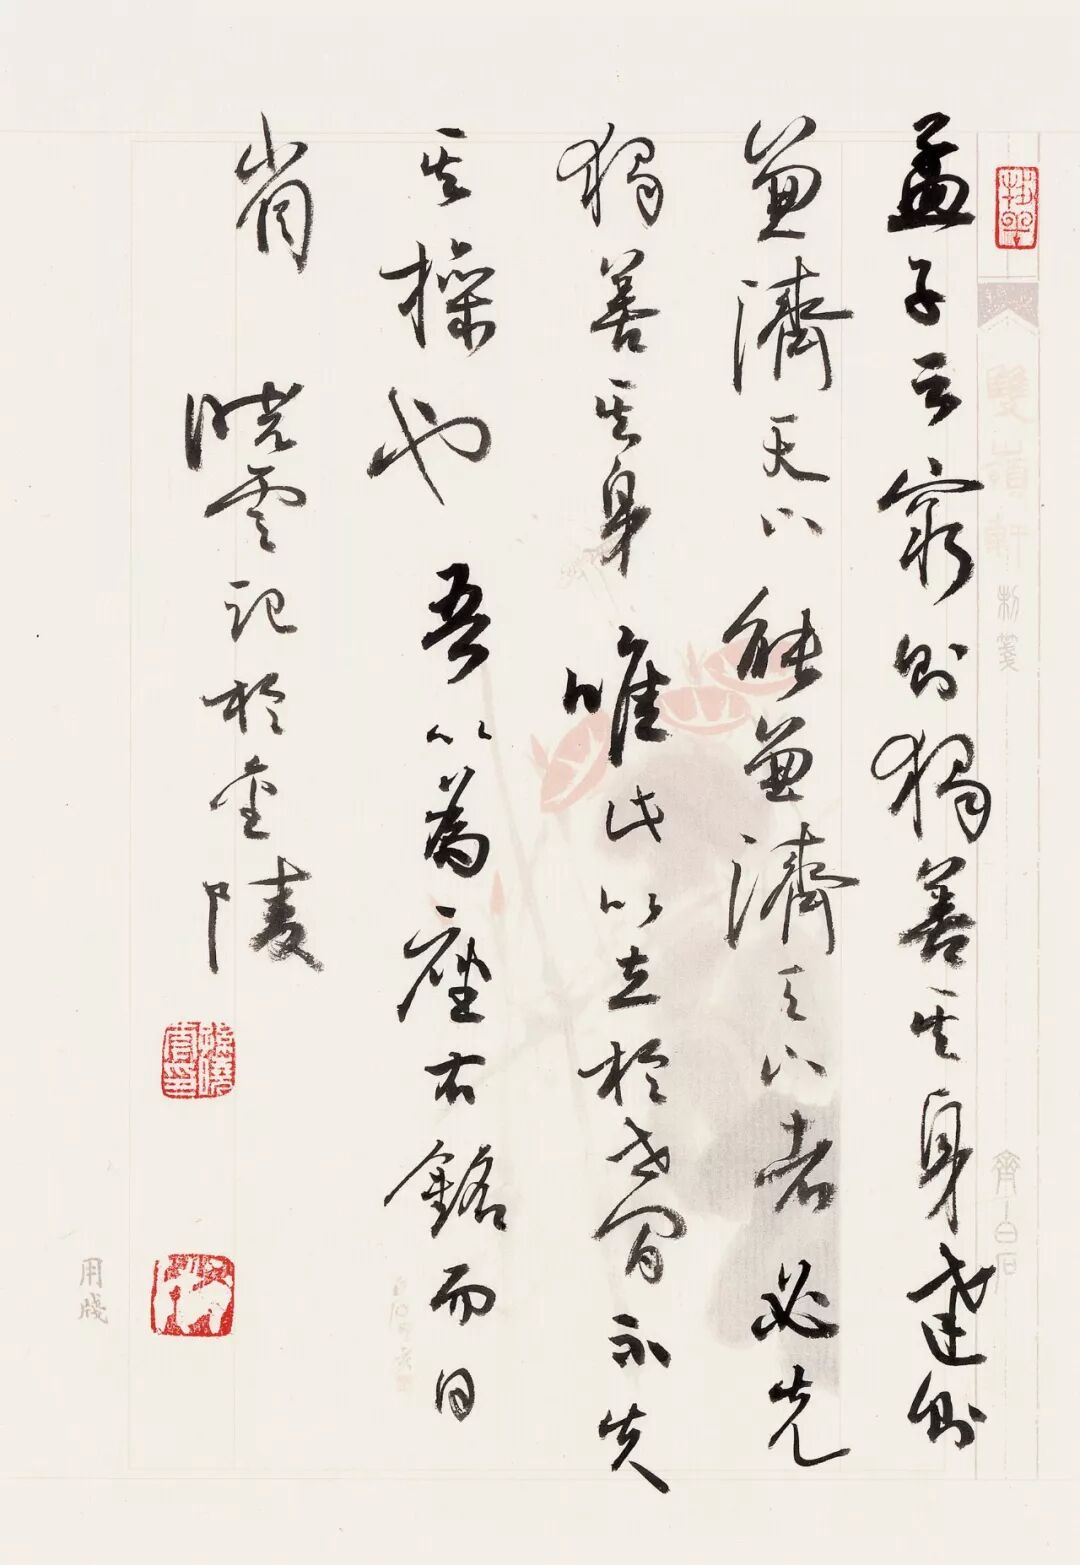 孟子云窮則獨善其身達則
兼濟天下能兼濟天下者必先
獨善其身唯此以立於世間而不失
其操也吾以為座右銘而日
省
曉雲記於金陵
雙嶺軒
制箋
齊白石
用箋